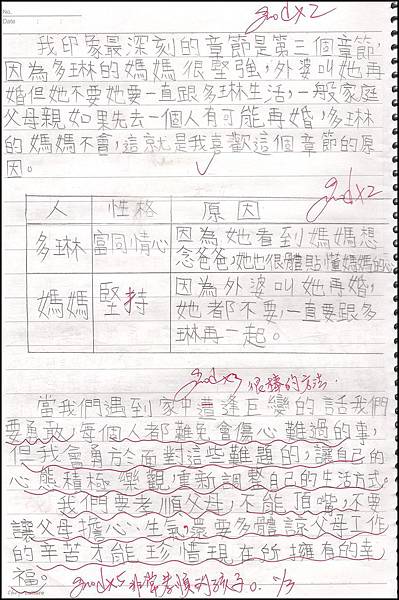 No.
Date
good x2
我印象最深刻的章節是第三個章節,
因為多琳的媽媽很堅強,外婆叫她再
婚但她不要她要一直跟多琳生活,一般家庭
父母親如果先去一個人有可能再婚,多琳
的媽媽不會,這就是我喜歡這個章節的原
因。
good x2
人 性格 原因
多琳 富同情心 因為她看到媽媽想
念爸爸,她也很體貼懂媽媽的心
媽媽 堅持 因為外婆叫她再婚,
她都不要,一直要跟多
琳再一起。
good x3 很棒的方法.
當我們遇到家中遭逢巨變的話我們
要勇敢,每個人都難免會傷心難過的事,
但我會勇於面對這些難題的,讓自己的
心態積極樂觀,重新調整自己的生活方式。
我們要孝順父母,不能頂嘴,不要
讓父母擔心、生氣,還要多體諒父母工作
的辛苦才能珍惜現在所擁有的幸
福。 good x5 非常孝順的孩子。